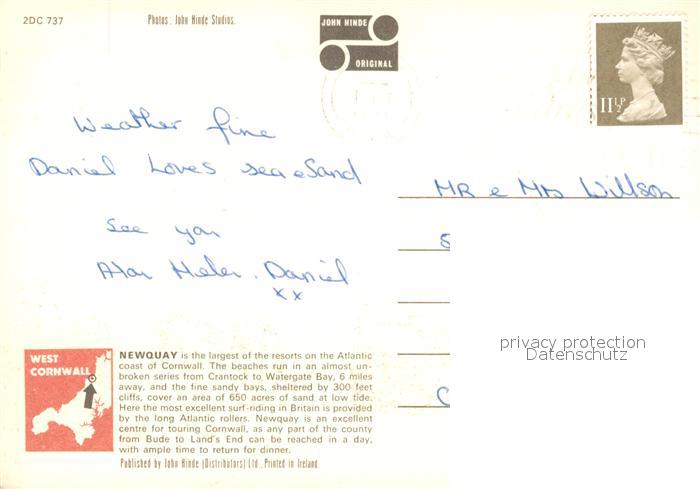 2DC 737
Photos: John Hinde Studios.
JOHN HINDE
ORIGINAL
11½P
Weather fine
Daniel Loves sea e Sand
see you
Alan Helen. Daniel
xx
MR e Mrs Willson
S
C
privacy protection
Datenschutz
WEST
CORNWALL
NEWQUAY is the largest of the resorts on the Atlantic
coast of Cornwall. The beaches run in an almost un-
broken series from Crantock to Watergate Bay, 6 miles
away, and the fine sandy bays, sheltered by 300 feet
cliffs, cover an area of 650 acres of sand at low tide.
Here the most excellent surf-riding in Britain is provided
by the long Atlantic rollers. Newquay is an excellent
centre for touring Cornwall, as any part of the county
from Bude to Land's End can be reached in a day,
with ample time to return for dinner.
Published by John Hinde (Distributors) Ltd., Printed in Ireland.